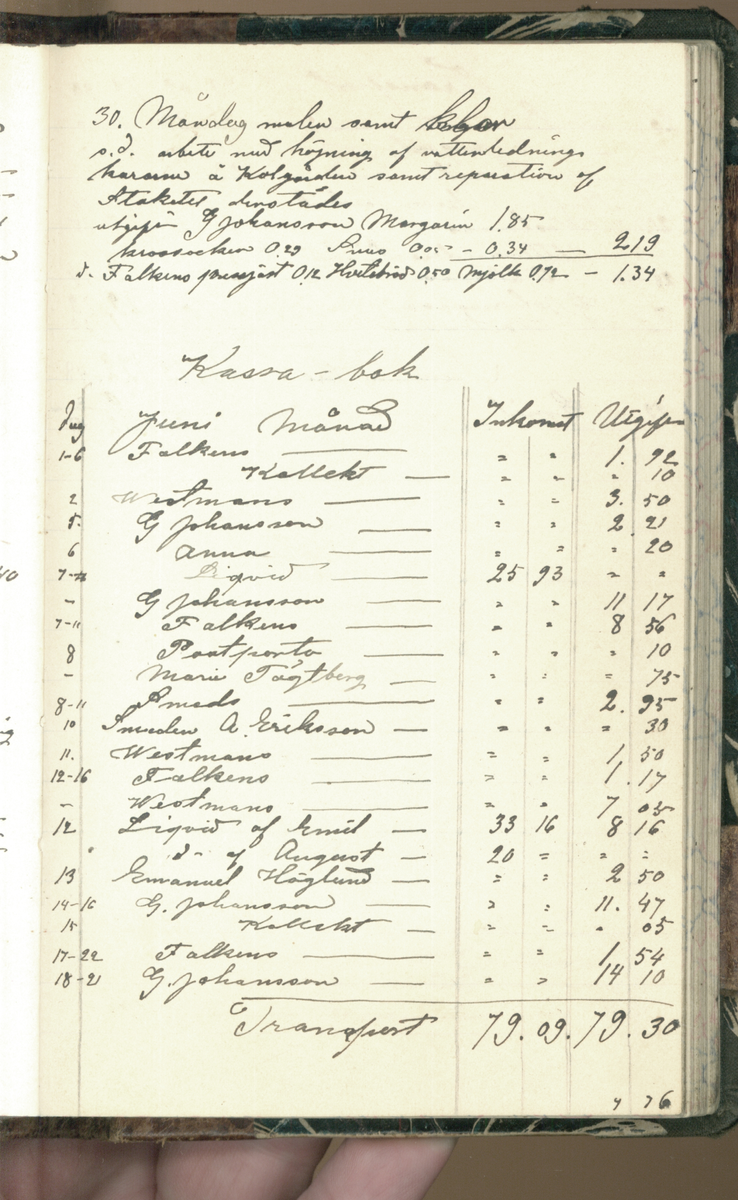 30. Måndag mulen samt klar
s.d. arbete med höjning af vattenlednings
karene å Kolgården samt reparation af
Staketet derstädes
utgift G Johansson Margarin 1.85
krossocker 0.29 Snus 0.05 - 0.34 — 2.19
d. Falkens pressjäst 0.12 Hvetebröd 0.50 Mjölk 0.72 - 1.34
Kassa-bok
Dag Juni Månad Inkomst Utgift
1-6 Falkens — " " 1. 92
Kollekt — " " " 10
2 Westmans — " " 3. 50
5. G Johansson — " " 2. 21
6 Anna — " " " 20
7 Liqvid — 25 93 " "
- G Johansson — " " 11 17
7-11 Falkens — " " 8 56
8 Postporto — " " " 10
- Marie Tägtberg — " " " 75
8-11 Smeds — " " 2. 95
10 Smeden A Eriksson — " " " 30
11. Westmans — " " 1, 50
12-16 Falkens — " " 1. 17
- Westmans — " " 7 05
12 Liqvid af Emil — 33 16 8 16
" d- af August — 20 " " "
13 Emanuel Höglund — " " 2 50
14-16 G. Johansson — " " 11. 47
15 Kollekt — " " " 05
17-22 Falkens — " " 1, 54
18-21 G. Johansson — " " 14 10
Transport 79. 09. 79. 30
7 76